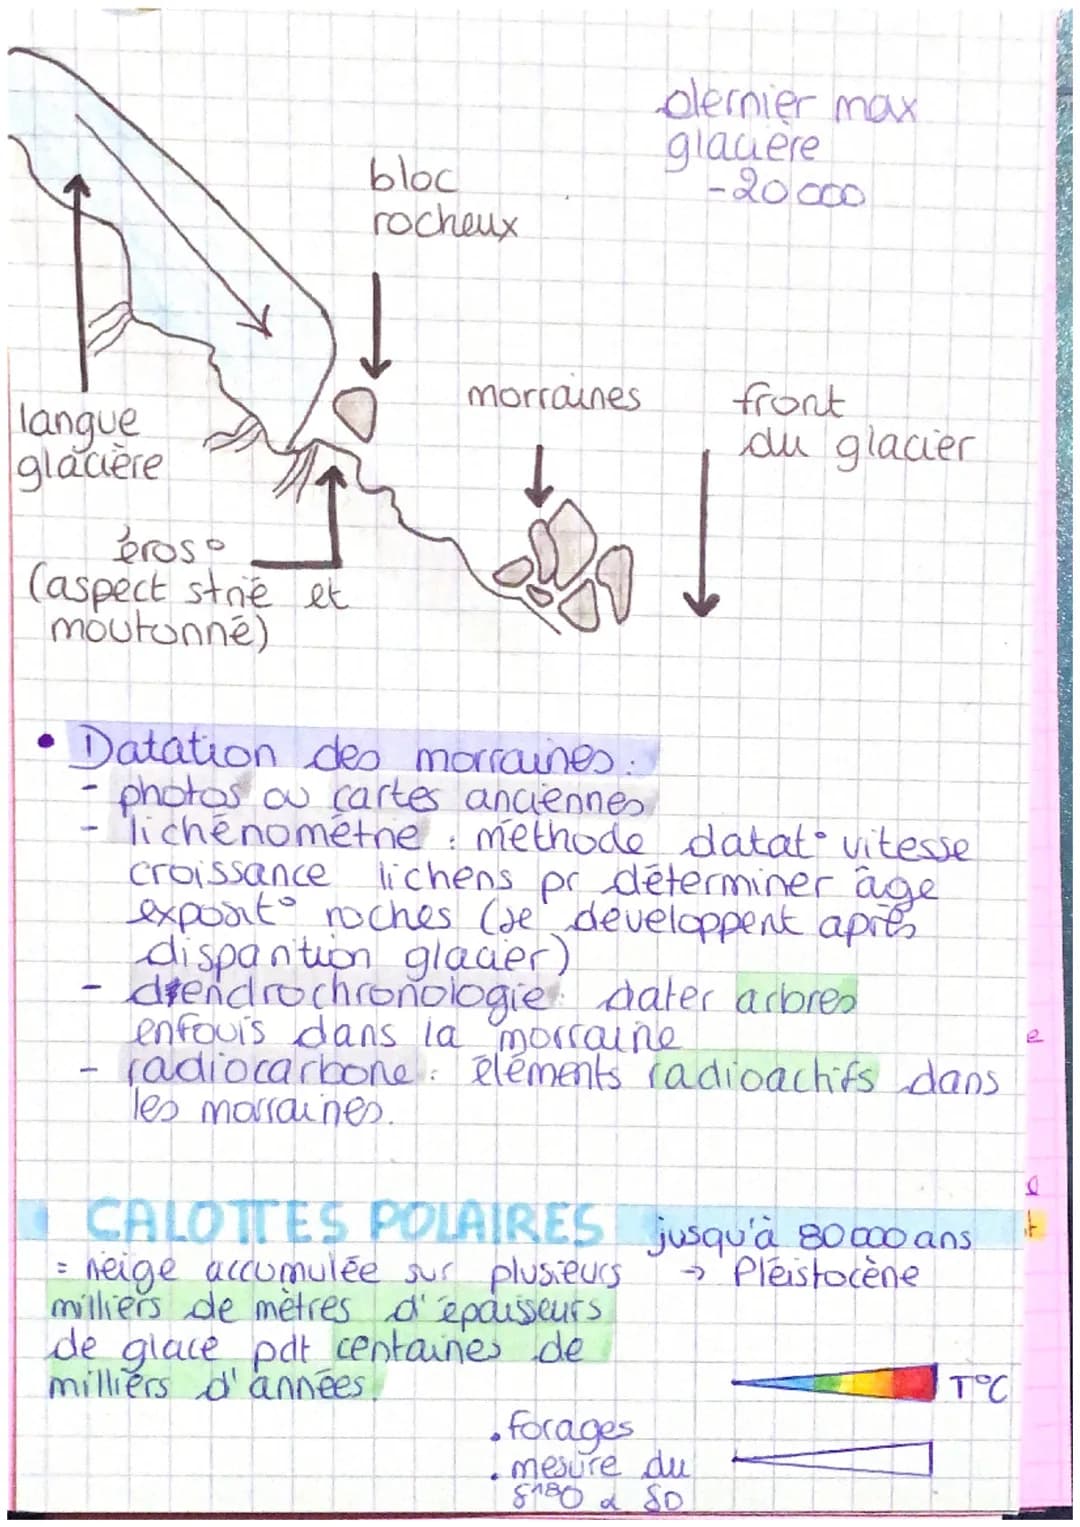 dernier max
glacière
-20 000
bloc
rocheux
morraines
front
du glacier
langue
glacière
éros°
(aspect strié et
moutonné)
• Datation des morraines :
- photos ou cartes anciennes
- lichénométrie : méthode datat° vitesse
croissance lichens pr déterminer âge
exposit° roches (se développent après
disparition glacier)
- dendrochronologie : dater arbres
enfouis dans la morraine
- radiocarbone : éléments radioactifs dans
les morraines.
CALOTTES POLAIRES jusqu'à 80 000 ans
= neige accumulée sur plusieurs → Pléistocène
milliers de mètres d'épaisseurs
de glace pdt centaines de
milliers d'années.
T°C
. forages
. mesure du
δ18O & δD
e
t